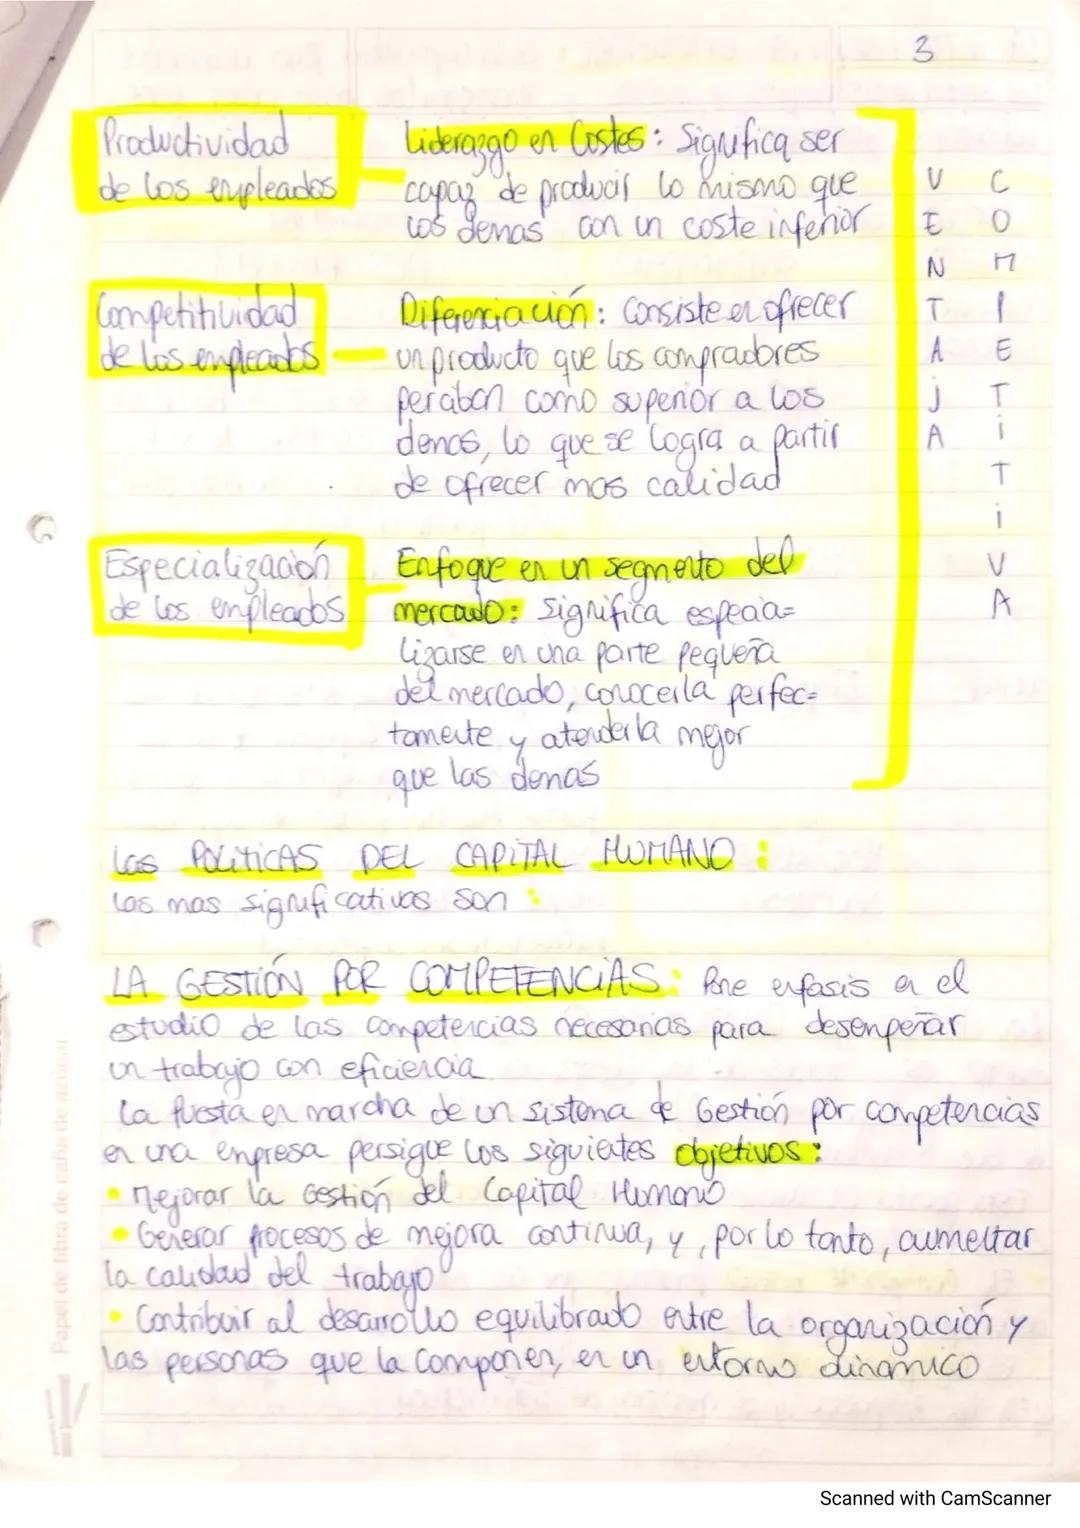 3
Productividad
de los empleados
Liderazgo en Costes: Significa ser
capaz de producir lo mismo que
los demas con un coste inferior
Competitividad
de los empleados
Diferenciación: Consiste en ofrecer
un producto que los compradores
perciban como superior a los
demas, lo que se logra a partir
de ofrecer mas calidad
Especialización
de los empleados
Enfoque en un segmento del
mercado: Significa especia=
lizarse en una parte pequeña
del mercado, conocerla perfec=
tamente y atenderla mejor
que las demas
VENTAJA
COMPIETITIVA
Las POLÍTICAS DEL CAPITAL HUMANO:
las mas significativas son:
LA GESTIÓN POR COMPETENCIAS: Pone enfasis en el
estudio de las competencias necesarias para desempeñar
un trabajo con eficiencia
La Puesta en marcha de un sistema de Gestión por competencias
en una empresa persigue los siguientes objetivos:
• Mejorar la Gestión del Capital Humano
• Generar procesos de mejora continua, y, por lo tanto, aumentar
la calidad del trabajo
• Contribuir al desarrollo equilibrado entre la organización y
las personas que la componen, en un entorno dinámico
Papel de fibra de caña de azúcar
Scanned with CamScanner